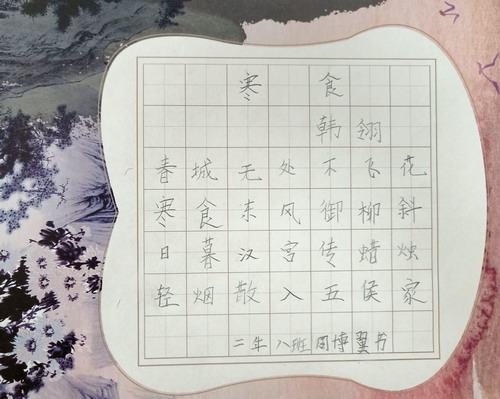 寒食
韩翃
春城无处不飞花
寒食东风御柳斜
日暮汉宫传蜡烛
轻烟散入五侯家
二年八班周博翼书